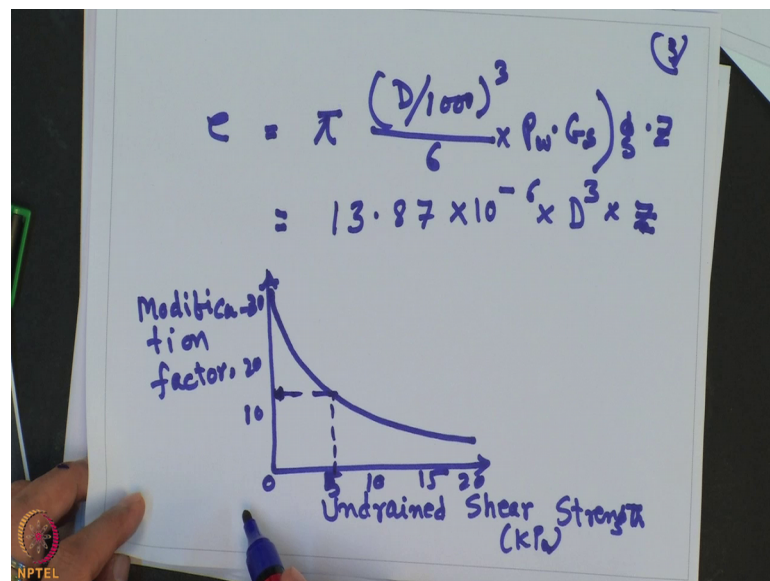 (3)
e = π (D/1000)³/6 × ρw · Gs) g · z
= 13.87 × 10⁻⁶ × D³ × z
Modifica-
tion
factor,
30
20
10
0 5 10 15 20
Undrained Shear Strength
(KPa)
NPTEL